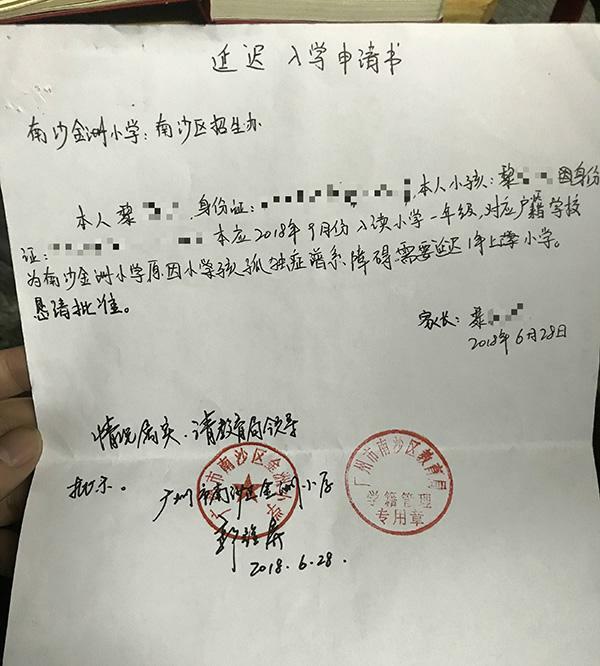 延迟入学申请书
南沙金洲小学:南沙区招生办
本人黎 ,身份证: ,本人小孩:黎 因身份
证: 本应2018年9月份入读小学一年级,对应户籍学校
为南沙金洲小学原因小孩孤独症谱系障碍需要延迟1年上小学。
恳请批准。
家长:黎
2018年6月28日
情况属实,请教育局领导
批示。
广州市南沙区金洲小学
2018.6.28.
广州市南沙区金洲小学
广州市南沙区教育局
学籍管理
专用章